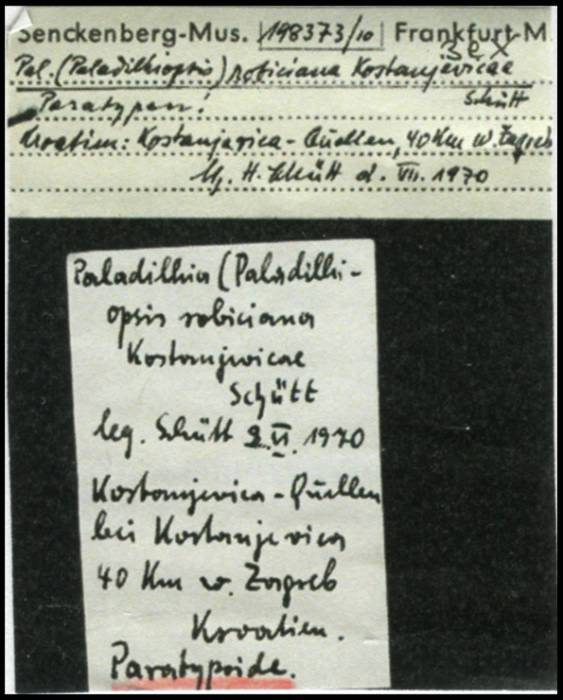 Senckenberg-Mus. 198373/10 Frankfurt-M
3 ex
Pal. (Paladilhiopsis) robiciana Kostanjevicae
Schütt
Paratypen!
Kroatien: Kostanjevica-Quellen, 40 Km W. Zagreb
H. Schütt d. VII. 1970
Paladilhia (Paladilhi-
opsis robiciana
Kostanjevicae
Schütt
leg. Schütt 2.VI. 1970
Kostanjevica-Quellen
bei Kostanjevica
40 Km w. Zagreb
Kroatien.
Paratypoide.